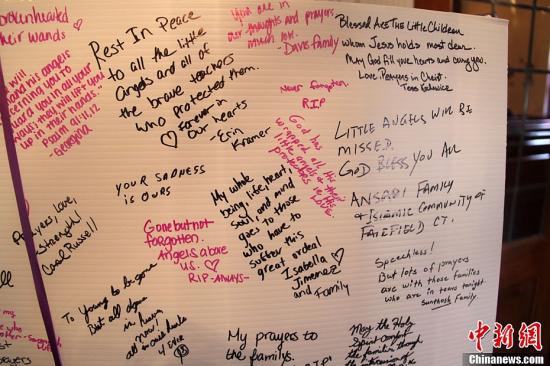 brokenhearted
their hands
will
command his angels
concerning you to
guard you in all your
ways; they will lift you
up in their hands."
Psalm 91:11,12
-Georgina
Rest In Peace
to all the little
angels and all of
the brave teachers
who protected them.
♡ Forever in
our hearts
-Erin
Kramer
You are in
our thoughts and prayers
much love.
Davis family
Never forgotten.
R.I.P
God has
wrapped all of these
little angels &
protectors in LOVE.
Blessed Are The Little Children
whom Jesus holds most dear.
May God fill your hearts and
Love & Prayers in Christ.
LITTLE ANGELS WILL BE
MISSED.
GOD BLESS YOU ALL
ANSARI FAMILY
of ISLAMIC COMMUNITY OF
FAIRFIELD CT.
YOUR SADNESS
IS OURS
Prayers, love,
strength!
Carol Russell
Gone but not
forgotten.
Angels above
us. ♡
RIP-ALWAYS-
My whole
being, life, heart,
soul and mind
goes to those
who have to
suffer this
great ordeal
Isabella ♡
Jimenez
and Family
Speechless!
But lots of prayers
are with those families
who are in tears tonight.
Santhosh Family.
To young to be gone
But all dogs
in heaven
now!
4 EVER
My prayers to
the familys.
R.I.P.
May the Holy
Spirit comfort
the families though
prayers
中新网
Chinanews.com